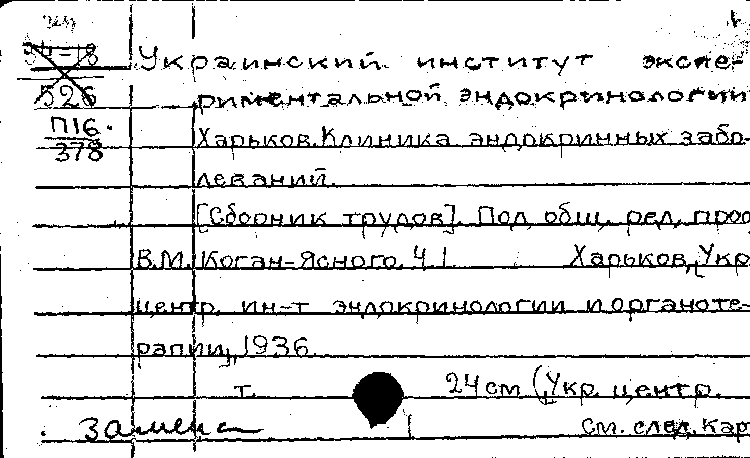 34-18
526
П16
378
Украинский институт экспе-
риментальной эндокринологии
Харьков. Клиника эндокринных забо-
леваний.
[Сборник трудов]. Под общ. ред. проф
В.М. Коган-Ясного. Ч 1. Харьков, Укр
центр. ин-т эндокринологии и органоте-
рапии, 1936.
т. 24 см (Укр. центр.
Замена См. след. кар